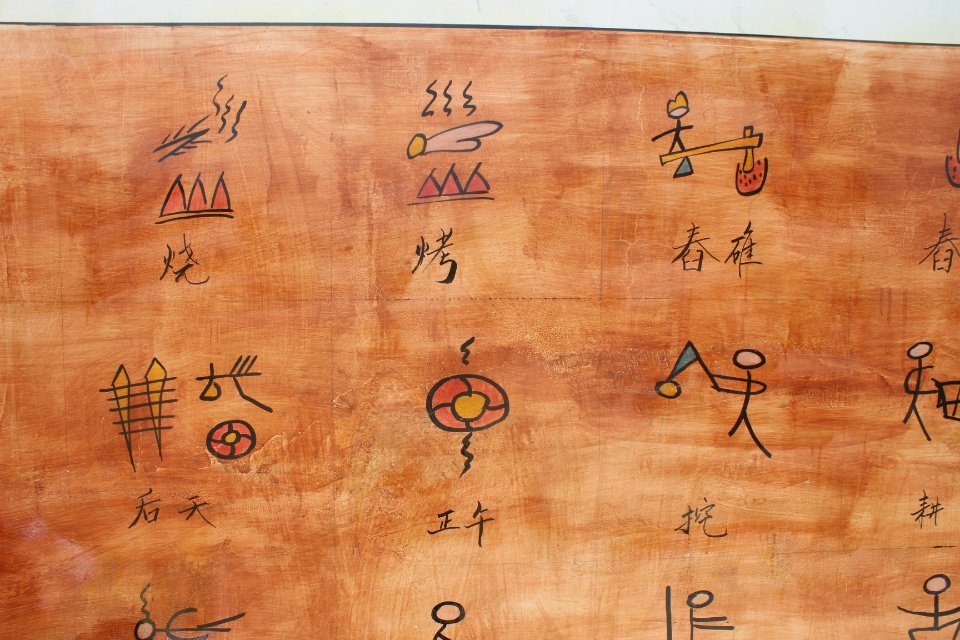 烧 烤 舂碓 舂
后天 正午 挖 耕